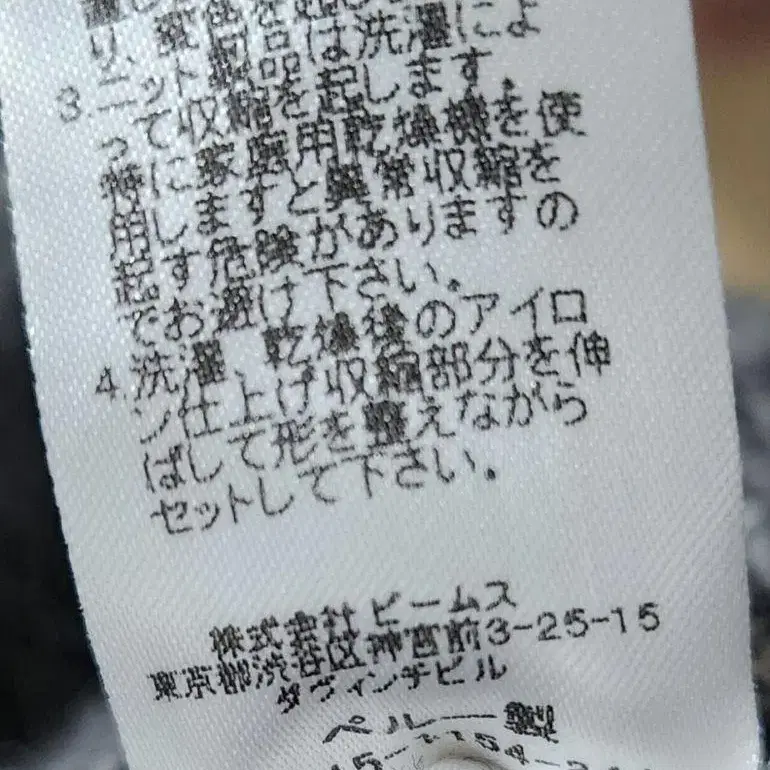 り、変色を起し
3.ニット製品は洗濯によ
って収縮を起します。
特に家庭用乾燥機を使
用しますと異常収縮を
起す危険がありますの
でお避け下さい。
4.洗濯、乾燥後のアイロ
ン仕上げ収縮部分を伸
ばして形を整えながら
セットして下さい。
株式会社 ビームス
東京都渋谷区神宮前3-25-15
ダヴィンチビル
ペルー製
15-1154-